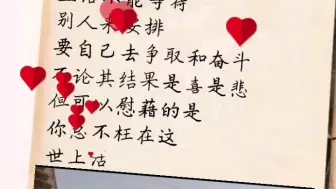 别人来安排
要自己去争取和奋斗
不论其结果是喜是悲
但可以慰藉的是
你总不枉在这
世上活